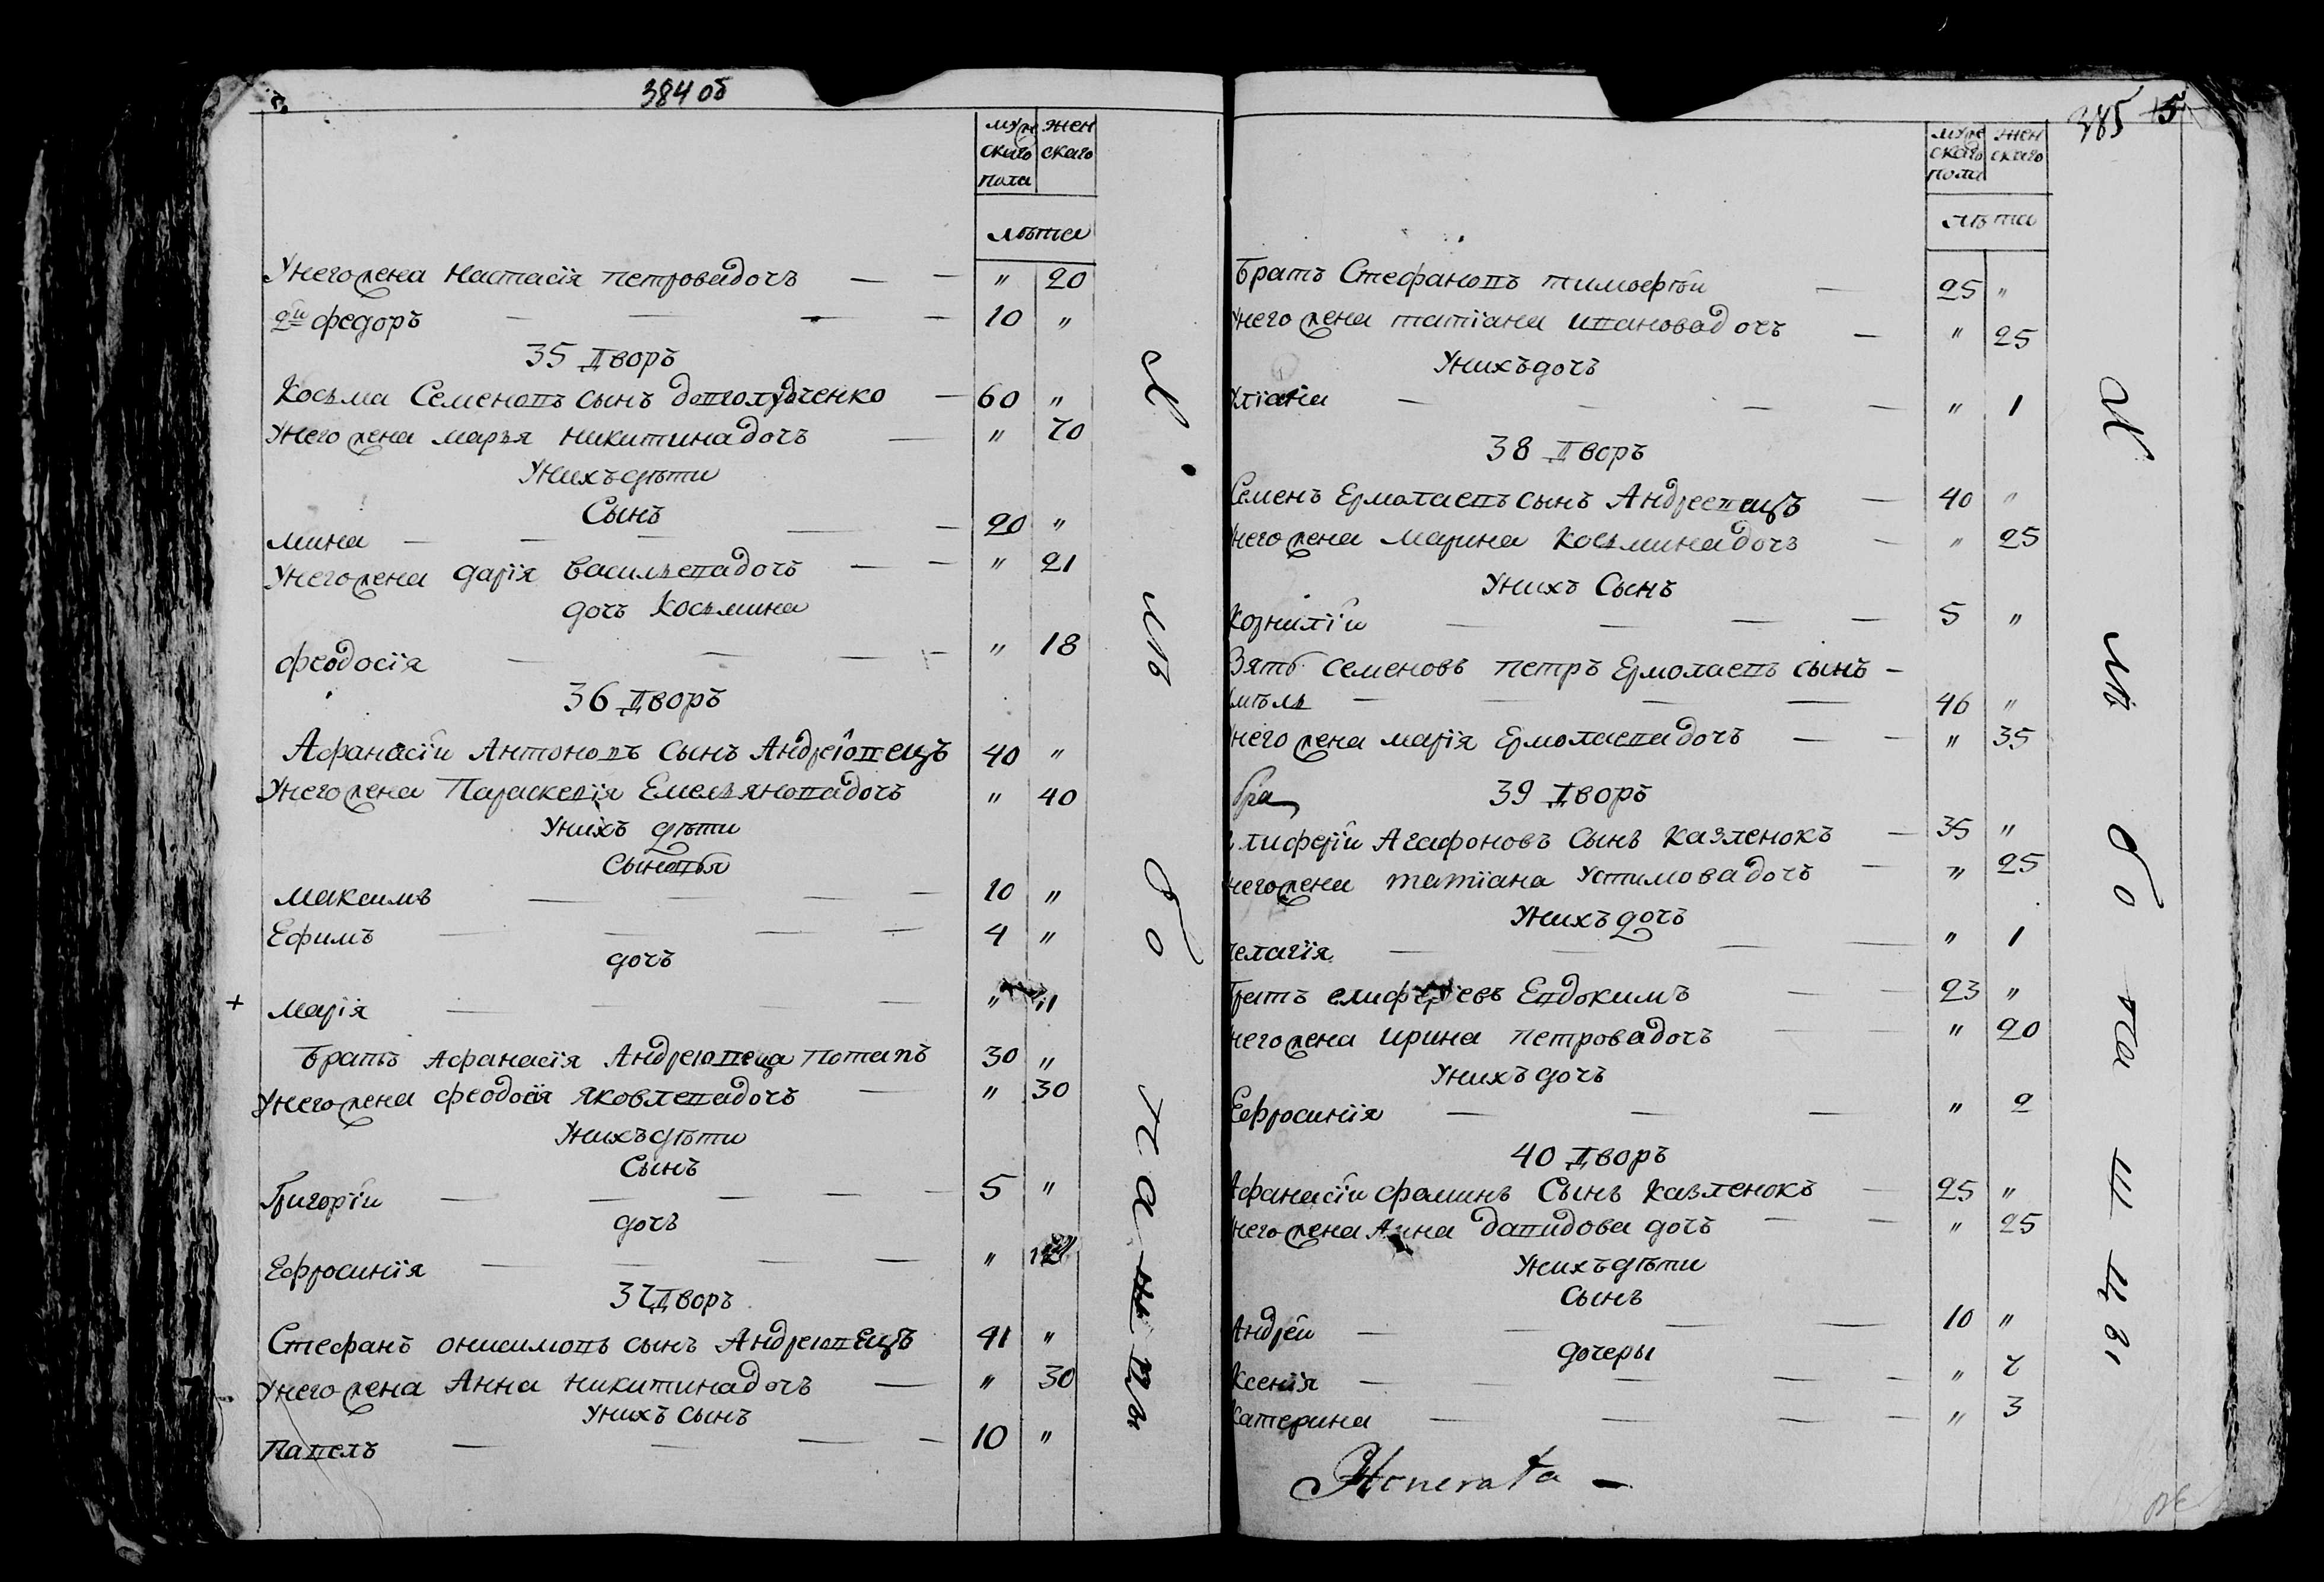 384 об
муже женскаго
скаго
пола
лѣта
У него жена Настасія Петрова дочъ — — " 20
2й Федоръ — — — — 10 "
35 Дворъ
Косьма Семеновъ сынъ Довголудченко — 60 "
У него жена Марья Никитина дочъ — " 70
У нихъ дѣти
Сынъ
Мина — — — — — 20 "
У него жена Дарія Васильева дочъ — — " 21
дочъ Косьмина
Феодосія — — — — " 18
36 Дворъ
Афанасіи Антоновъ сынъ Андреювецъ 40 "
У него жена Параскевія Емельянова дочъ " 40
У нихъ дѣти
Сыновья
Максимъ — — — — 10 "
Ефимъ — — — — 4 "
дочъ
+ Марія — — — "
Братъ Афанасія Андреювеца Потапъ 30 "
У него жена Феодосія Яковлева дочъ — " 30
У нихъ дѣти
Сынъ
Григоріи — — — — — 5 "
дочъ
Ефросинія — — — — "
37 Дворъ
Стефанъ Онисимовъ сынъ Андреювецъ 41 "
У него жена Анна Никитина дочъ — " 30
У нихъ сынъ
Павелъ — — — — 10 "
385
муже женскаго
скаго
пола
лѣта
Братъ Стефановъ Тимофеи — 25 "
У него жена Татіана Иванова дочъ — " 25
У нихъ дочъ
Уліана — — — — " 1
38 Дворъ
Семенъ Ермолаевъ сынъ Андреевецъ — 40 "
У него жена Марина Косьмина дочъ — " 25
У нихъ Сынъ
Корниліи — — — — 5 "
Зятъ Семеновъ Петръ Ермолаевъ сынъ —
— — — — 46 "
У него жена Марія Ермолаева дочъ — — " 35
39 Дворъ
Елиферіи Агафоновъ Сынъ Казленокъ — 35 "
У него жена Татіана Устимова дочъ — " 25
У нихъ дочъ
Пелагія — — — — " 1
Братъ Елиферіевъ Евдокимъ — — 23 "
У него жена Ирина Петрова дочъ — — " 20
У нихъ дочъ
Ефросинія — — — " 2
40 Дворъ
Афанасіи Фоминъ Сынъ Казленокъ — 25 "
У него жена Анна Давидова дочъ — — " 25
У нихъ дѣти
Сынъ
Андреи — — — — 10 "
дочеры
Ксенія — — — — " 7
Катерина — — — — " 3